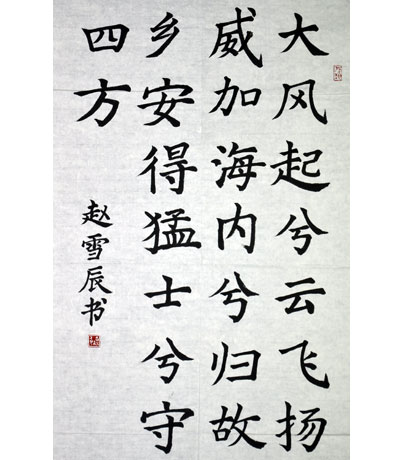 大风起兮云飞扬
威加海内兮归故
乡安得猛士兮守
四方
赵雪辰书